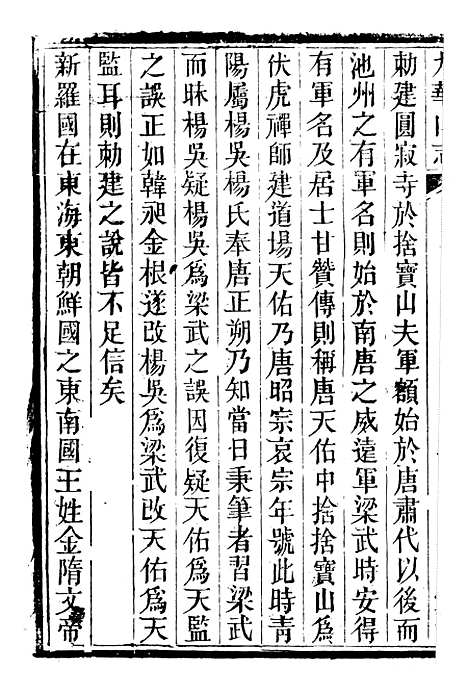 九華山志
勅建圓寂寺於捨寶山夫軍額始於唐肅代以後而
池州之有軍名則始於南唐之威遠軍梁武時安得
有軍名及居士甘贊傳則稱唐天佑中捨捨寶山為
伏虎禪師建道場天佑乃唐昭宗哀宗年號此時青
陽屬楊吳楊氏奉唐正朔乃知當日秉筆者習梁武
而昧楊吳疑楊吳為梁武之誤因復疑天佑為天監
之誤正如韓昶金根遂改楊吳為梁武改天佑為天
監耳則勅建之說皆不足信矣
新羅國在東海東朝鮮國之東南國王姓金隋文帝